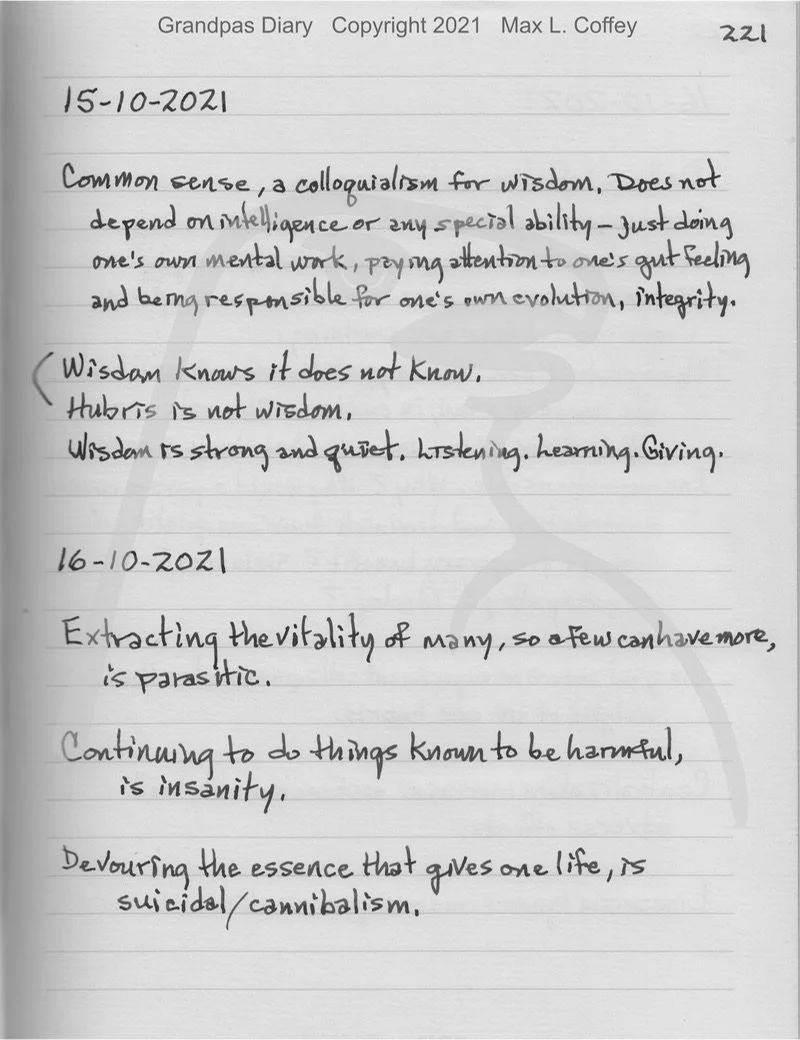 Grandpas Diary Copyright 2021 Max L. Coffey
221
15-10-2021
Common sense, a colloquialism for wisdom. Does not
depend on intelligence or any special ability – just doing
one's own mental work, paying attention to one's gut feeling
and being responsible for one's own evolution, integrity.
Wisdom knows it does not know.
Hubris is not wisdom.
Wisdom is strong and quiet. Listening. Learning. Giving.
16-10-2021
Extracting the vitality of many, so a few can have more,
is parasitic.
Continuing to do things known to be harmful,
is insanity.
Devouring the essence that gives one life, is
suicidal/cannibalism.